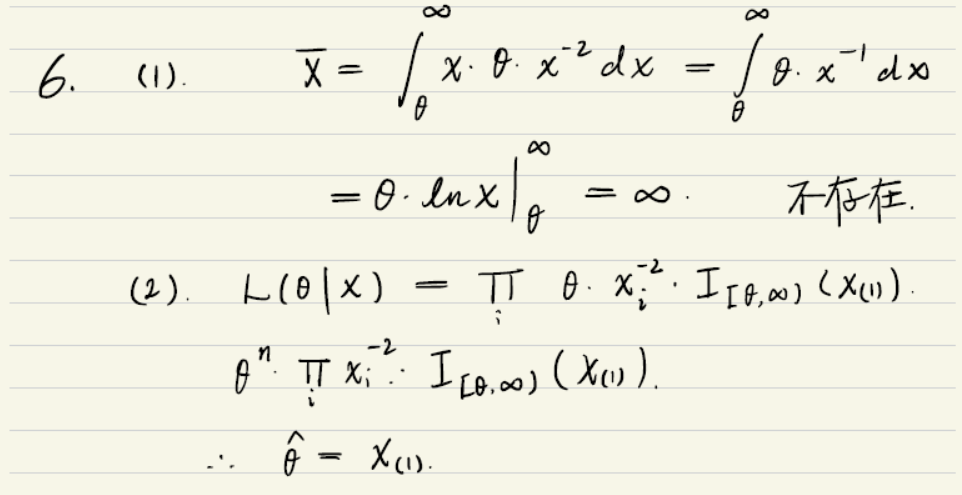 6. (1). X̄ = ∫_θ^∞ x · θ · x^{-2} dx = ∫_θ^∞ θ · x^{-1} dx
= θ · ln x |_θ^∞ = ∞. 不存在.
(2). L(θ|x) = ∏_i θ · x_i^{-2} · I_{[θ,∞)} (x_{(1)}).
θ^n · ∏_i x_i^{-2} · I_{[θ,∞)} (x_{(1)}).
∴ θ̂ = x_{(1)}.